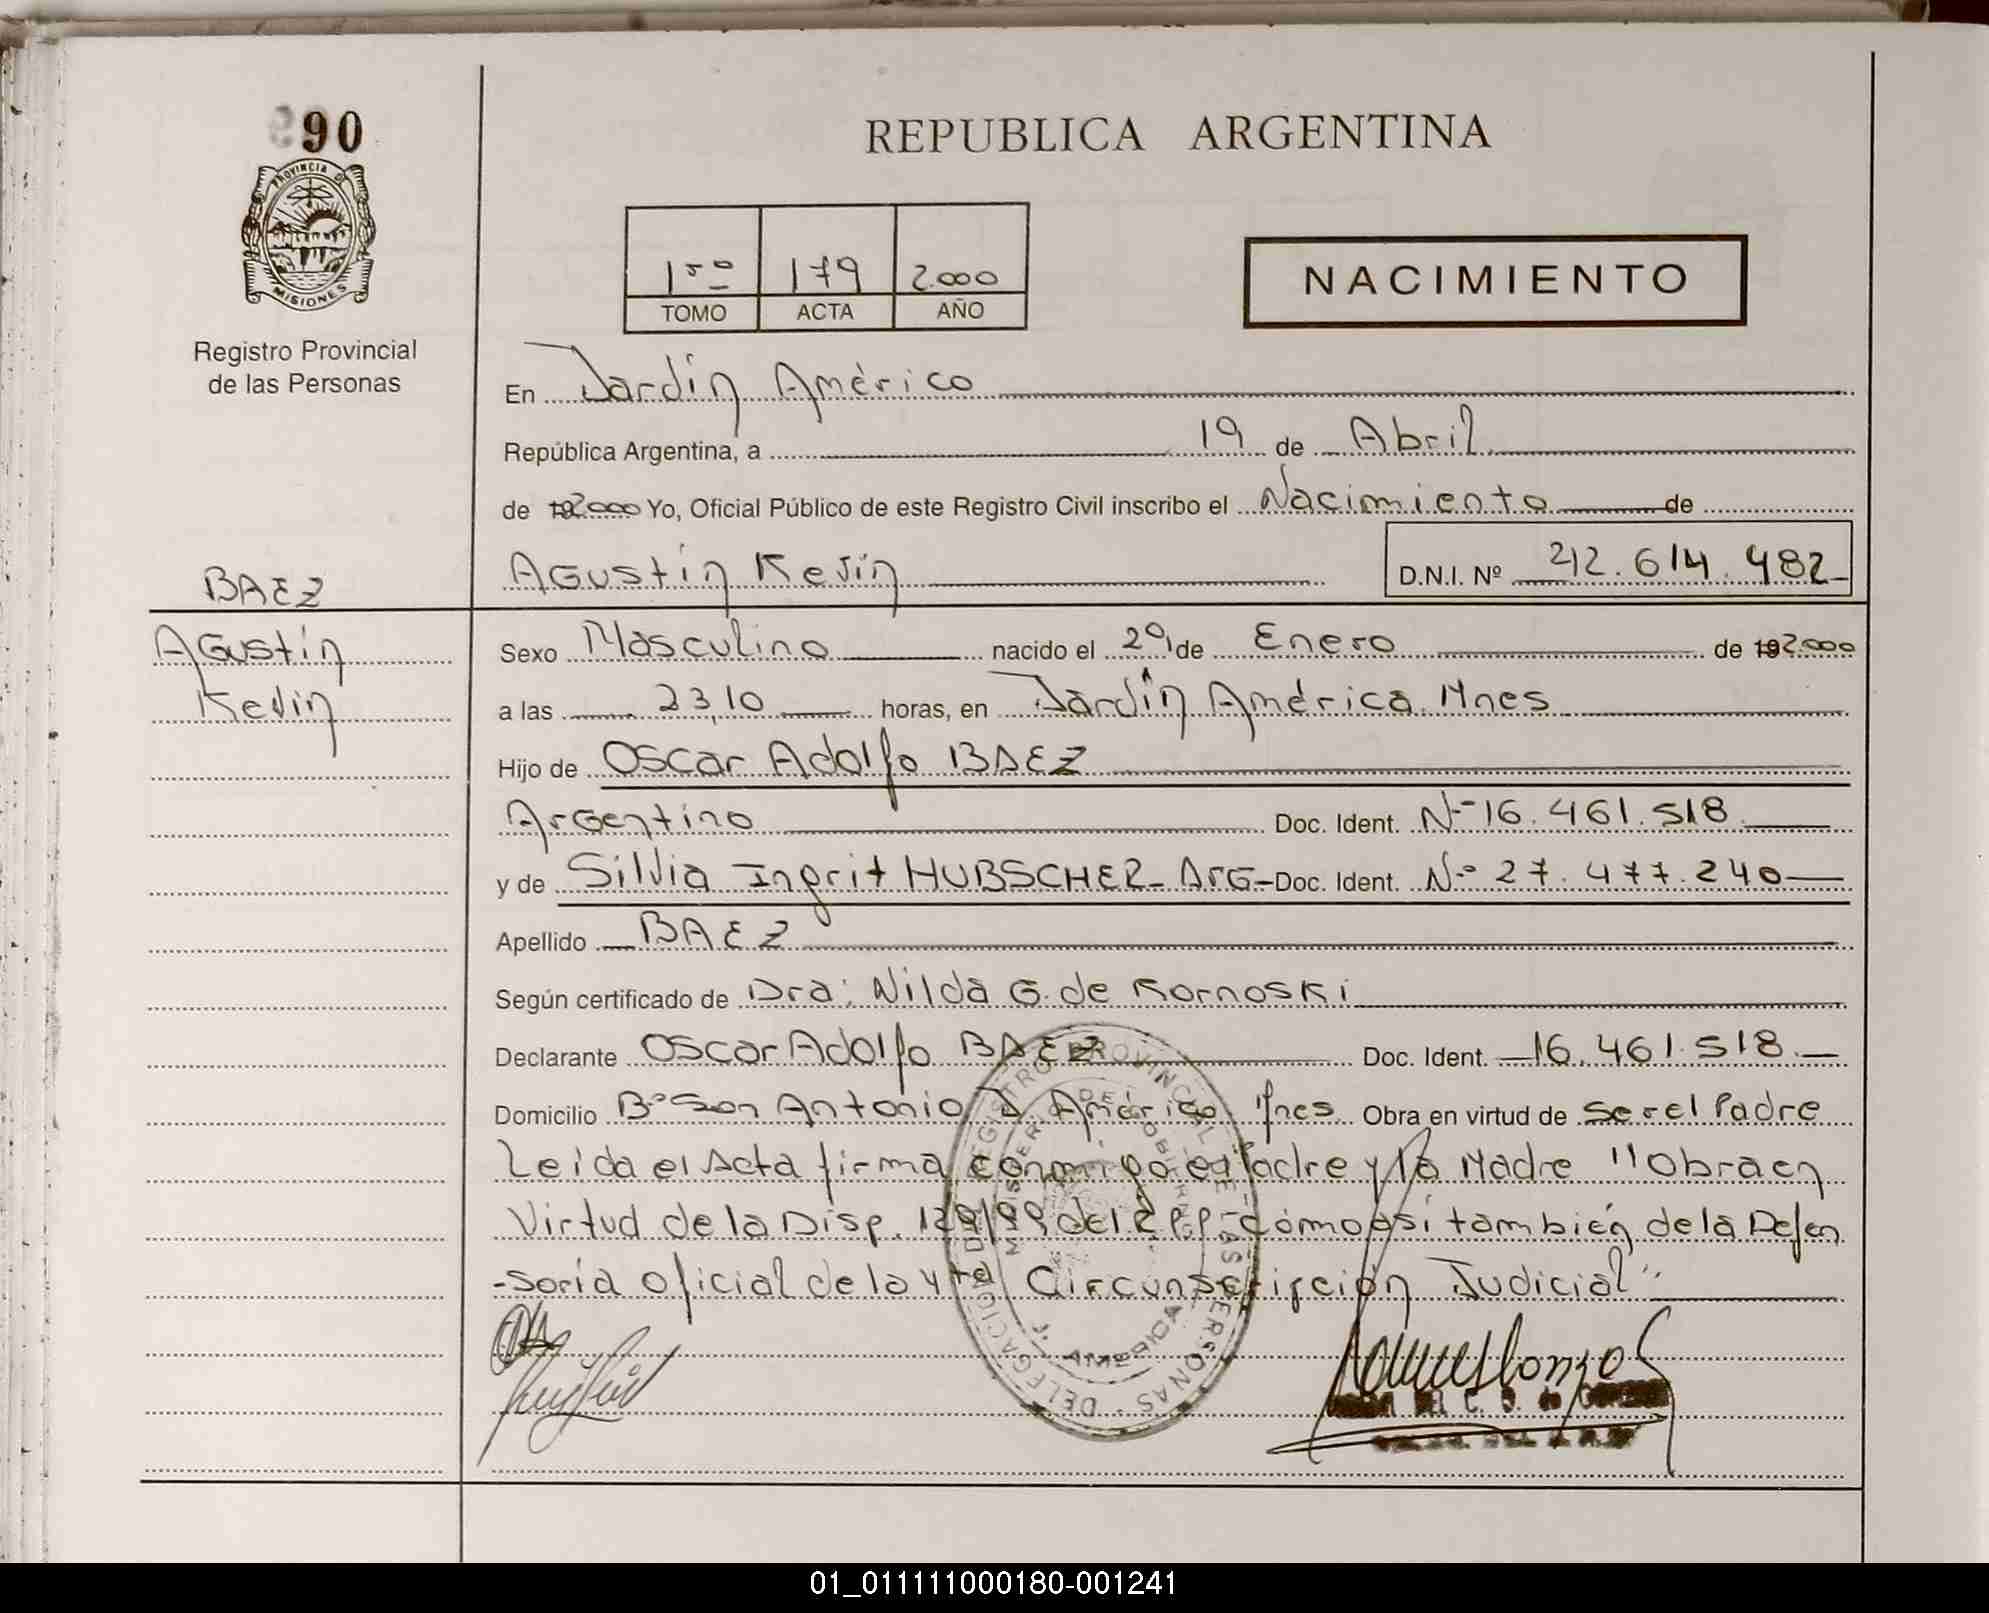 90
PROVINCIA DE
MISIONES
Registro Provincial
de las Personas
REPUBLICA ARGENTINA
1ro 179 2.000
TOMO ACTA AÑO
NACIMIENTO
En Jardín América
República Argentina, a 19 de Abril
de 192.000 Yo, Oficial Público de este Registro Civil inscribo el Nacimiento de
Agustín Kevin D.N.I. Nº 42.614.482
BAEZ
Agustín
Kevin
Sexo Masculino nacido el de Enero de 192.000
a las 23,10 horas, en Jardín América Mnes
Hijo de Oscar Adolfo BAEZ
Argentino Doc. Ident. Nº 16.461.518
y de Silvia Ingrit HUBSCHER - Arg - Doc. Ident. Nº 27.477.240
Apellido BAEZ
Según certificado de Dra: Nilda G. de Kornoski
Declarante Oscar Adolfo BAEZ Doc. Ident. 16.461.518
Domicilio Bº San Antonio J. América Mnes. Obra en virtud de ser el Padre
Leida el Acta firma conmigo el Padre y la Madre "Obra en
Virtud de la Disp. del cómo así también de la Defen
-soría oficial de la 4ta Circunscripción Judicial"
REGISTRO PROVINCIAL DE LAS PERSONAS - DELEGACION
AMERICA
01_011111000180-001241